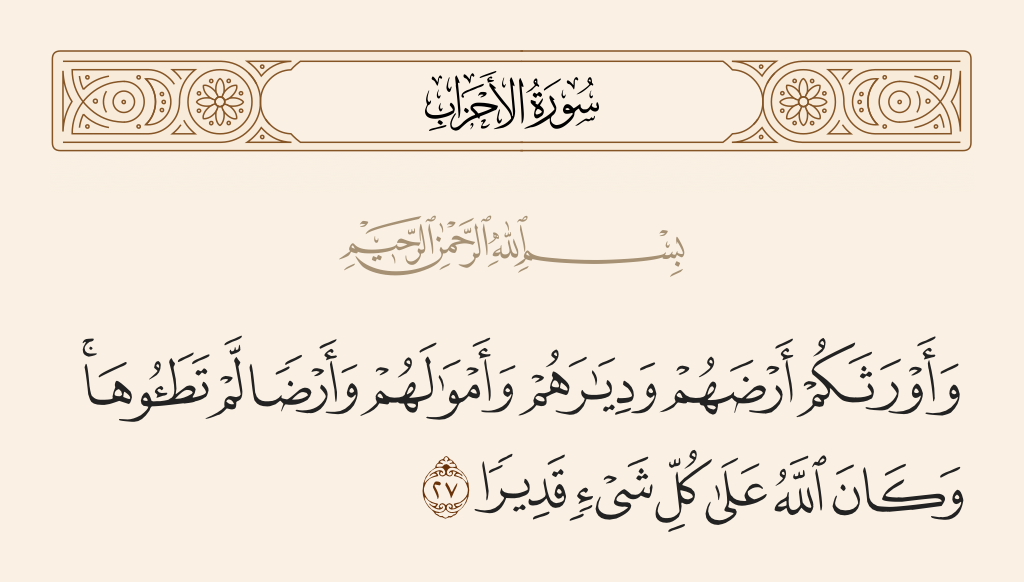 سُورَةُ الأَحْزَابِ
بِسْمِ ٱللَّهِ ٱلرَّحْمَٰنِ ٱلرَّحِيمِ
وَأَوْرَثَكُمْ أَرْضَهُمْ وَدِيَٰرَهُمْ وَأَمْوَٰلَهُمْ وَأَرْضًا لَّمْ تَطَـُٔوهَا ۚ
وَكَانَ ٱللَّهُ عَلَىٰ كُلِّ شَىْءٍ قَدِيرًا ٢٧